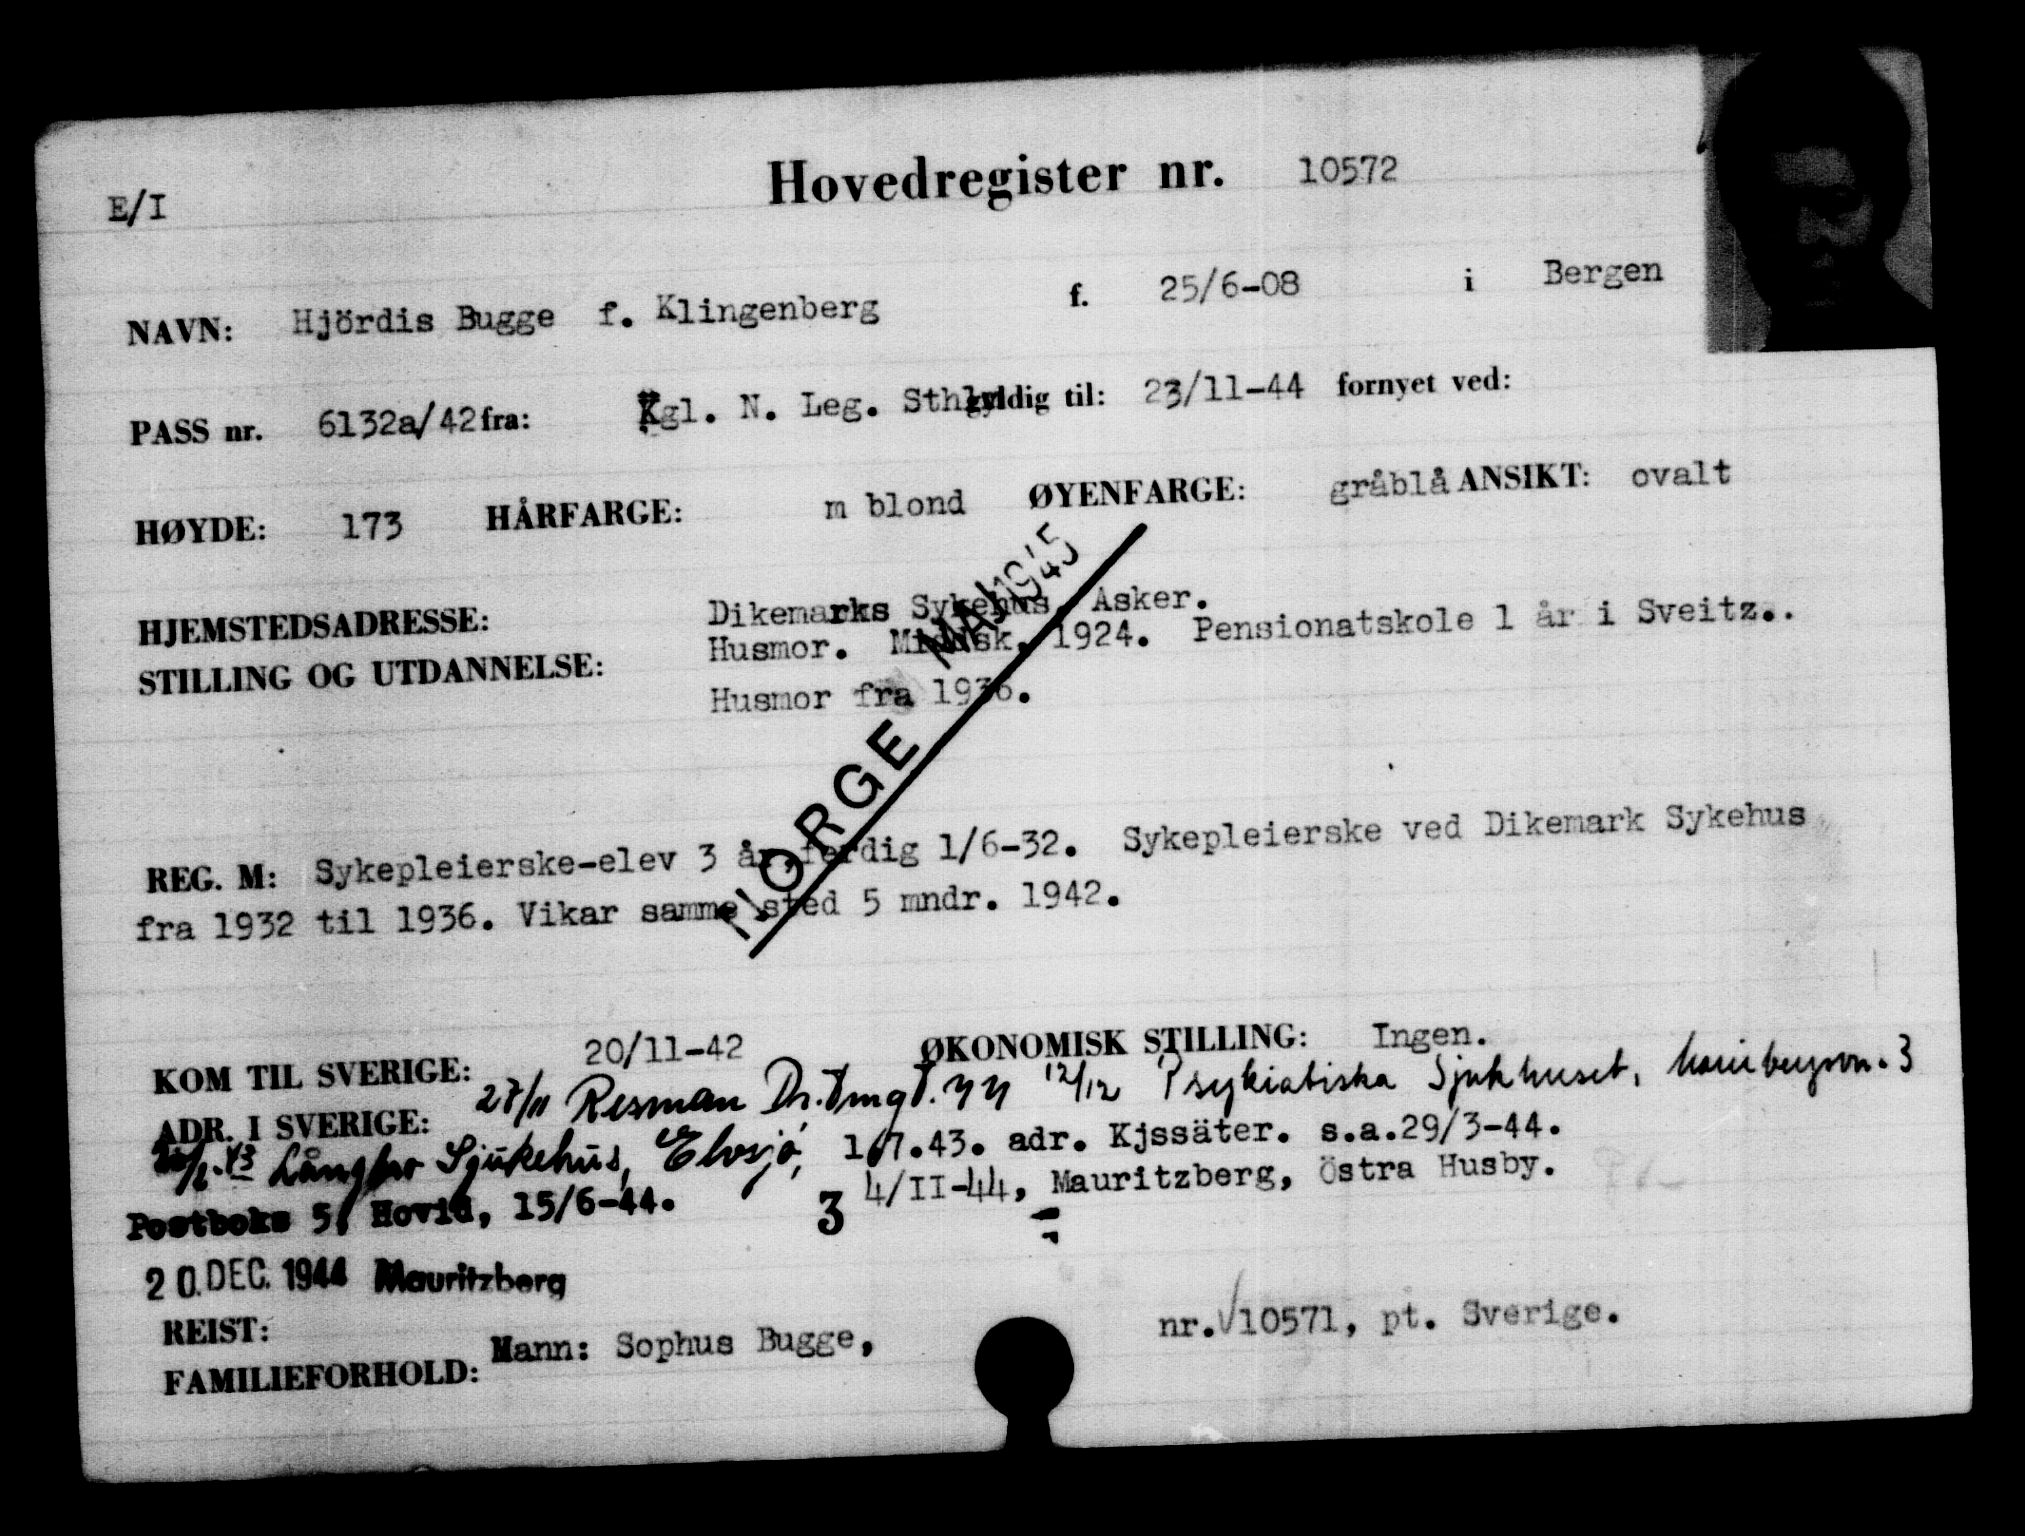 E/I
Hovedregister nr. 10572
NAVN: Hjördis Bugge f. Klingenberg f. 25/6-08 i Bergen
PASS nr. 6132a/42 fra: Kgl. N. Leg. Sthlm gyldig til: 23/11-44 fornyet ved:
HØYDE: 173 HÅRFARGE: m blond ØYENFARGE: gråblå ANSIKT: ovalt
HJEMSTEDSADRESSE: Dikemarks Sykehus, Asker.
STILLING OG UTDANNELSE: Husmor. Middsk. 1924. Pensionatskole 1 år i Sveitz..
Husmor fra 1936.
NORGE MAI 1945
REG. M: Sykepleierske-elev 3 år, ferdig 1/6-32. Sykepleierske ved Dikemark Sykehus
fra 1932 til 1936. Vikar samme sted 5 mndr. 1942.
KOM TIL SVERIGE: 20/11-42 ØKONOMISK STILLING: Ingen.
ADR. I SVERIGE: 27/11 Resman Dr. 12/12 Psykiatiska Sjukhuset, 3
43 Långbro Sjukehus, Elvsjö, 1/7.43. adr. Kjssäter. s.a.29/3-44.
Postboks 5, Hovid, 15/6-44. 3 4/II-44, Mauritzberg, Östra Husby.
20. DEC. 1944 Mauritzberg
REIST:
FAMILIEFORHOLD: Mann: Sophus Bugge, nr. √10571, pt. Sverige.